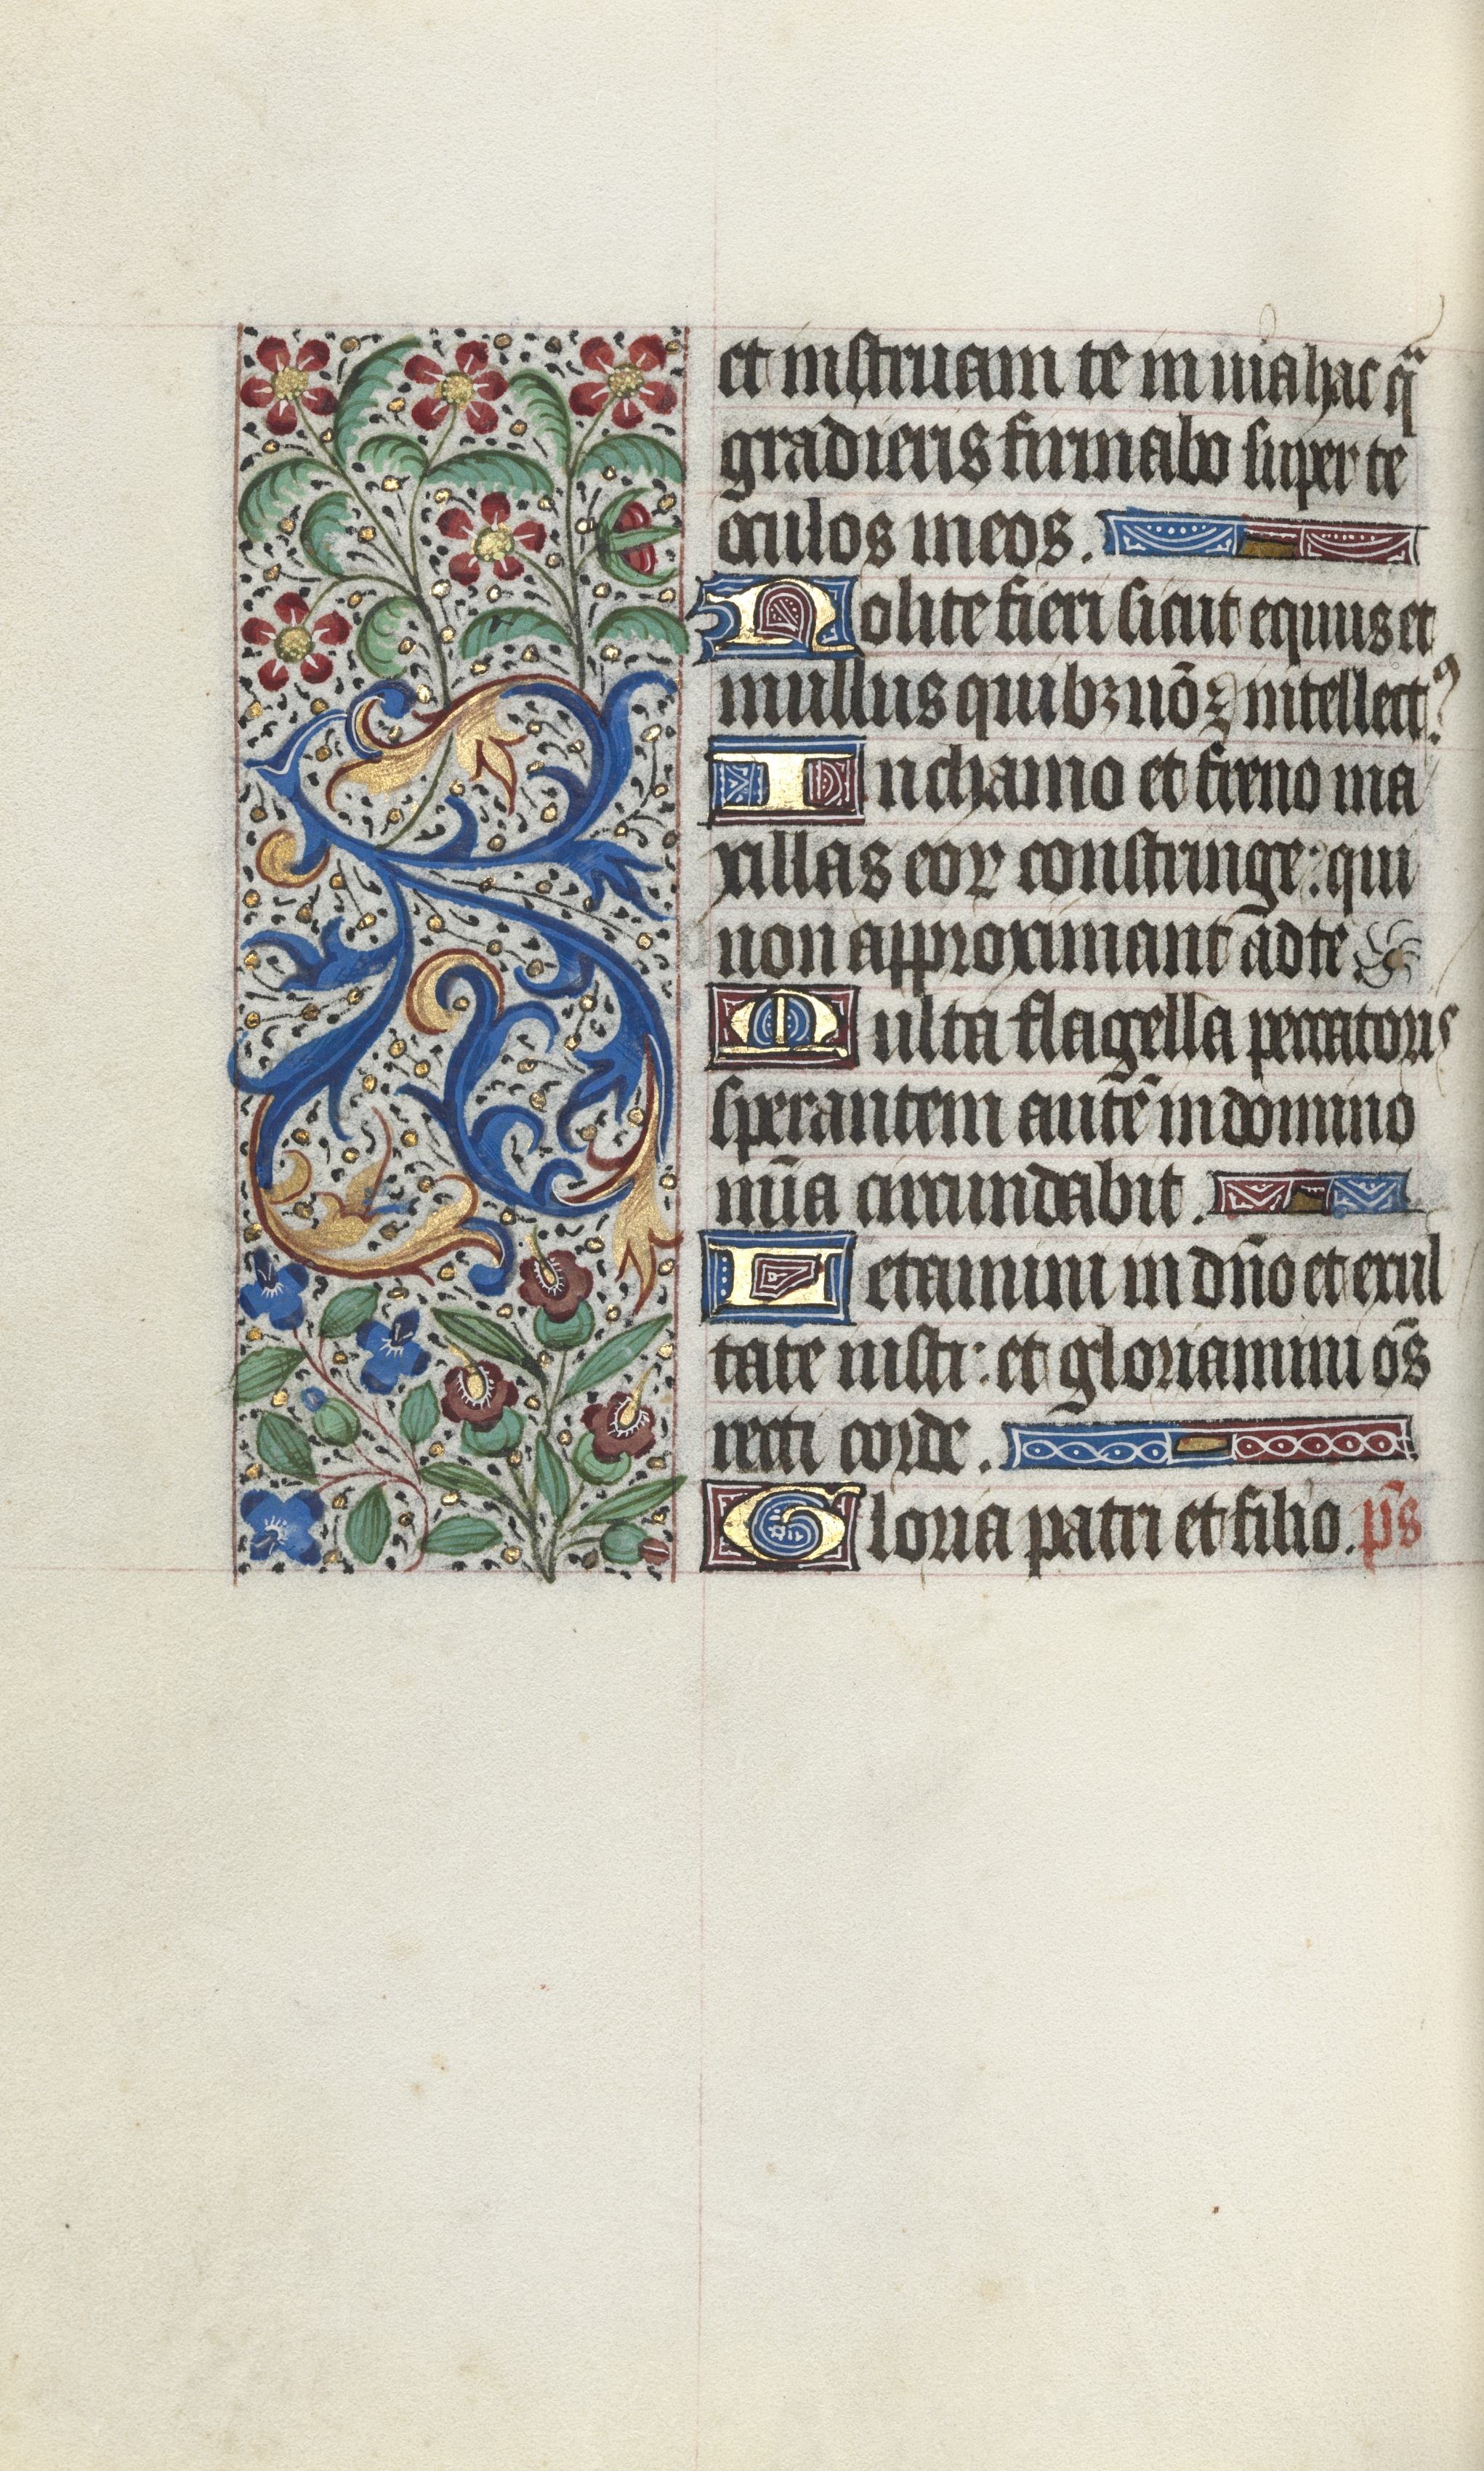 et instruam te in uia hac qͣ
gradieris firmabo super te
oculos meos.
Nolite fieri sicut equus et
mullus quibꝫ nō ē intellectꝰ
In chamo et freno ma
xillas eoꝝ constringe: qui
non approximant ad te.
Multa flagella peccatoris
sperantem autē in domino
mīa circundabit.
Letamini in dn̄o et exul
tate iusti: et gloriamini om̄s
recti corde.
Gloria patri et filio. p̄s